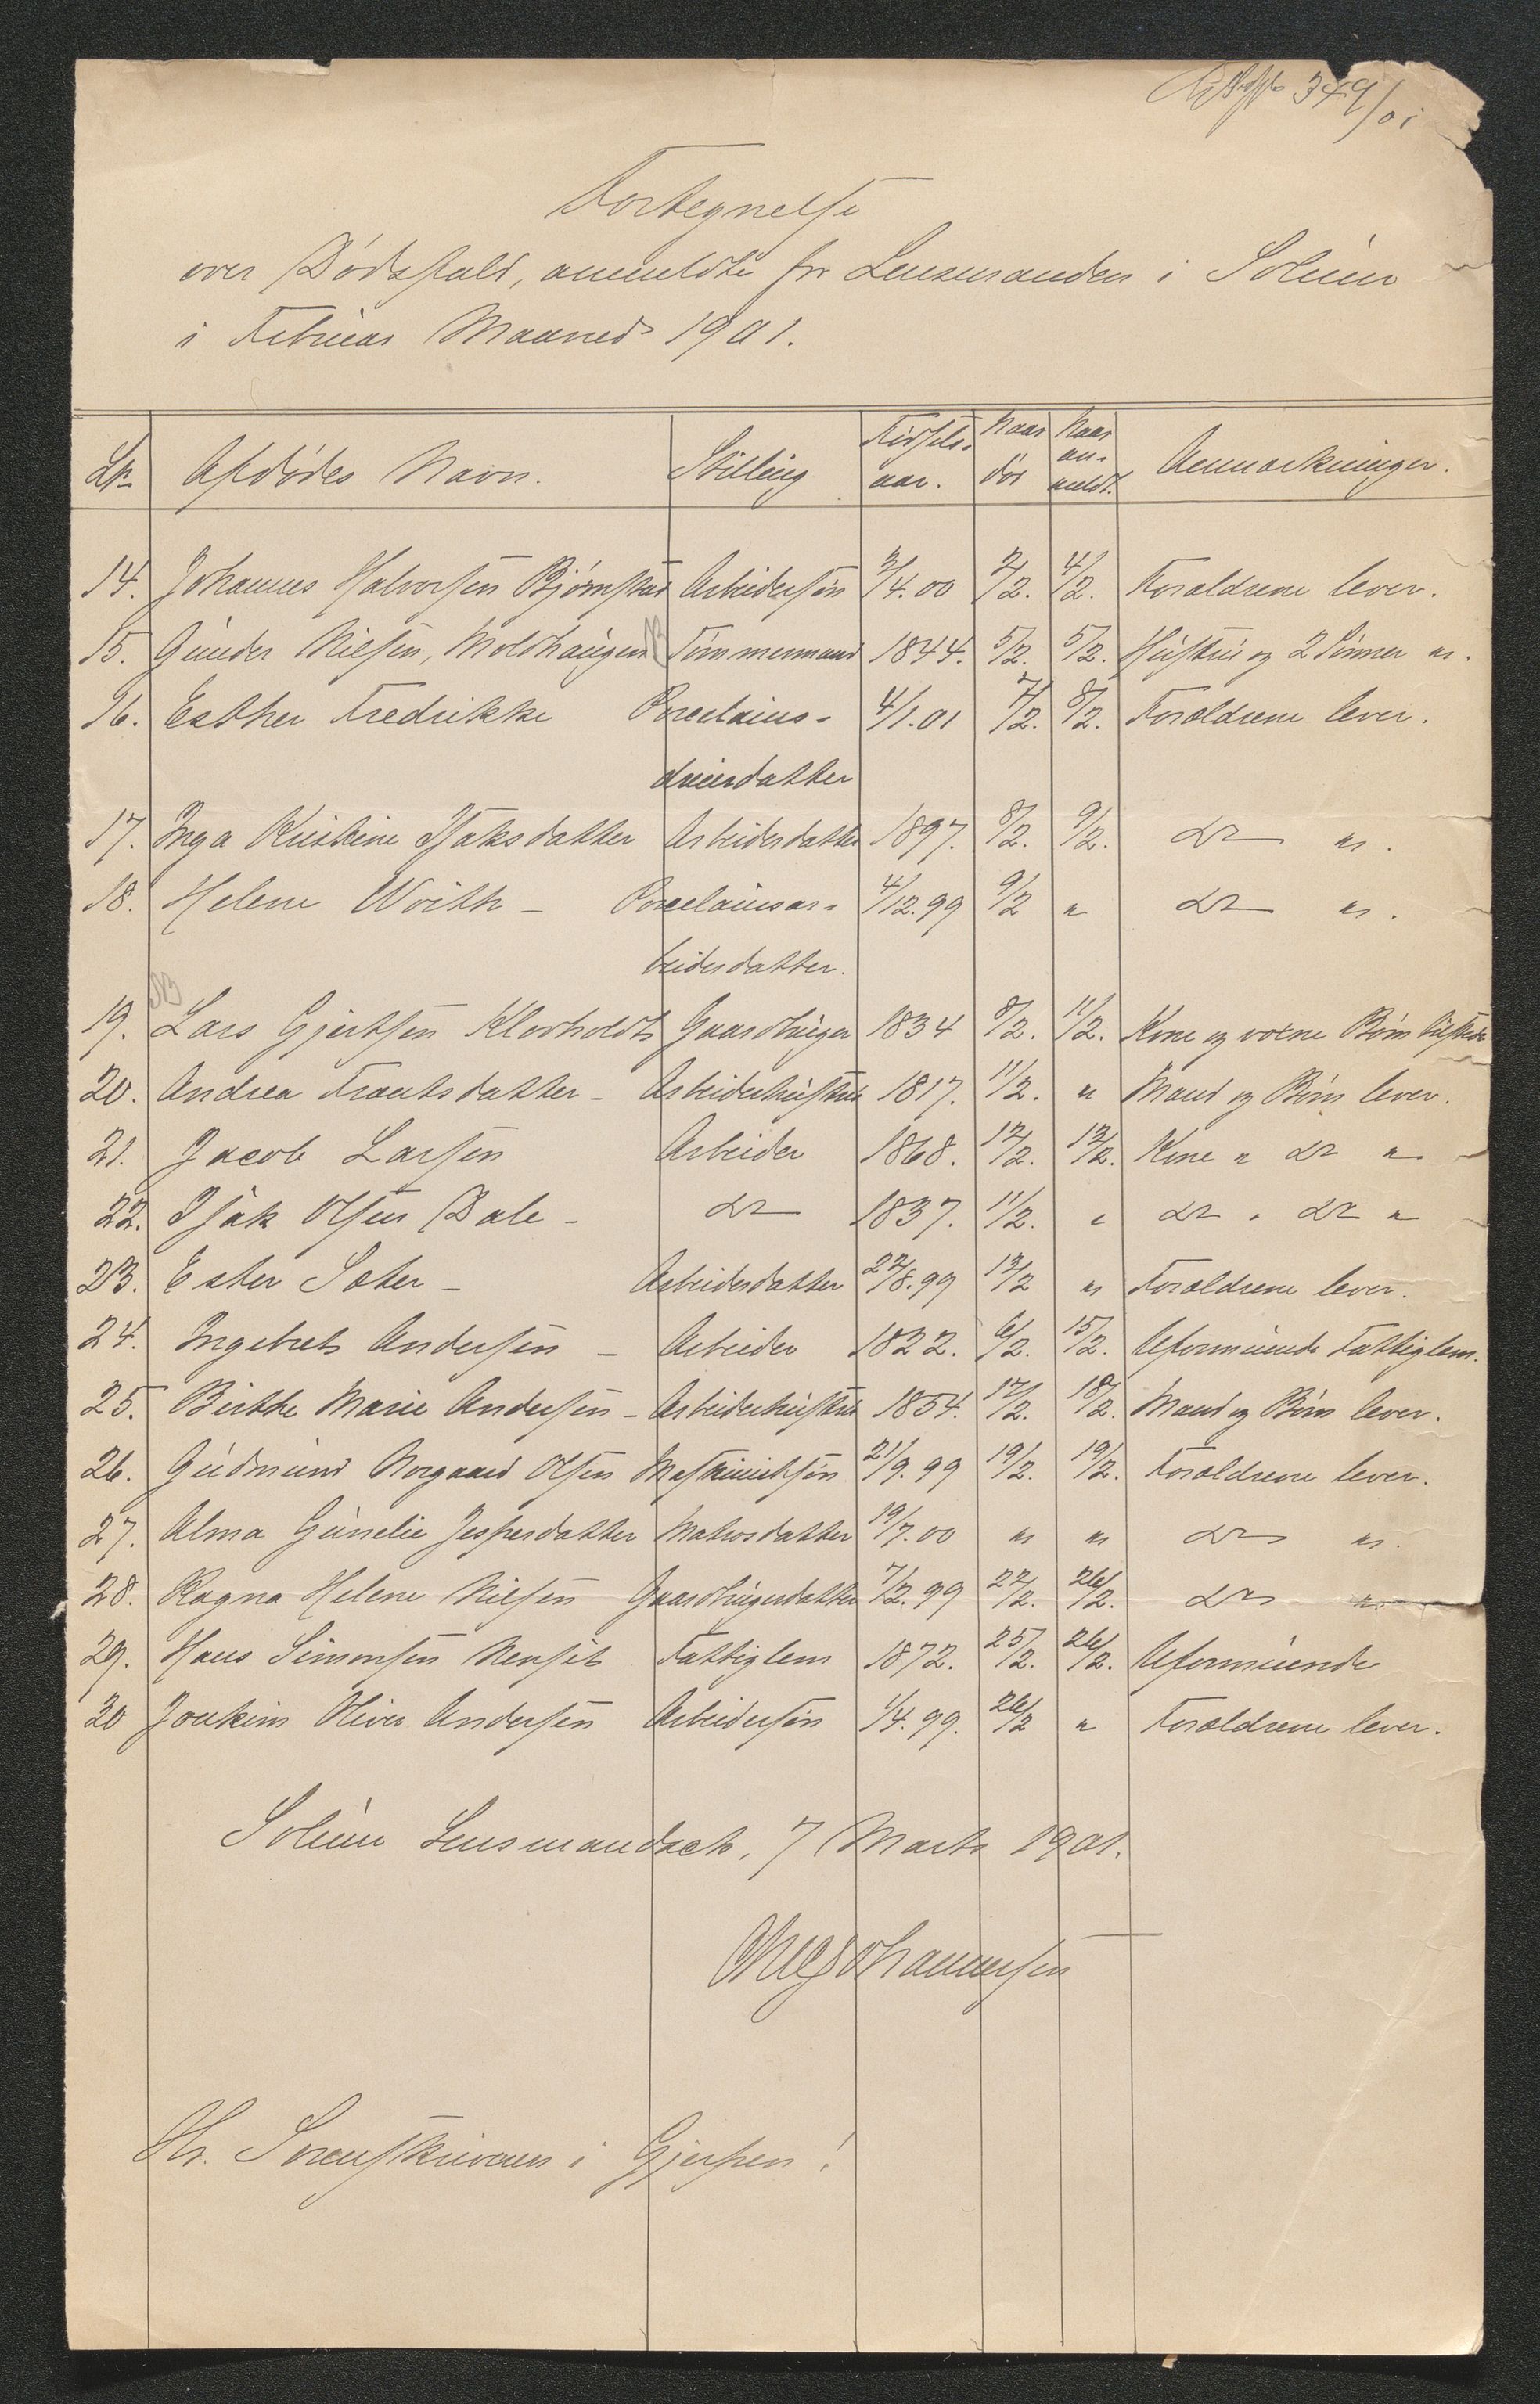 349/01
Fortegnelse
over Dødsfald, anmeldte for Lensmanden i Solum
i Februar Maaned 1901.
Lb. Afdødes Navn. Stilling Fødsels-aar. Naar død Naar an-meldt. Anmærkninger.
14. Johannes Halvorsen Bjørnstad Arbeidersøn 3/4.00 2/2. 4/2. Forældrene lever.
15. Gunder Nielsen, Moldhaugen Tømmermand 1844. 5/2. 5/2. Hustru og 2 Sønner "
16. Esther Fredrikke Porcelains- 4/1.01 7/2. 8/2. Forældrene lever.
dreierdatter
17. Inga Kristine Isaksdatter Arbeiderdatter 1897. 8/2. 9/2. do " .
18. Helene Woith - Porcelainsar- 4/12.99 9/2 " do " .
beiderdatter.
19. Lars Gjertsen Klovholdt Gaardbruger 1834 8/2. 11/2. Kone og voxne Børn
20. Andrea Frantsdatter - Arbeiderhustru 1817. 11/2. " Mand og Børn lever.
21. Jacob Larsen Arbeider 1868. 12/2. 13/2. Kone " do "
22. Isak Olsen Dale - do 1837. 11/2. " do " do "
23. Ester Sæter - Arbeiderdatter 22/8.99 13/2 " Forældrene lever.
24. Ingebret Andersen - Arbeider 1822. 6/2. 15/2. Uformuende Fattiglem.
25. Birthe Marie Andersen - Arbeiderhustru 1854. 17/2. 18/2. Mand og Børn lever.
26. Gudmund Norgaard Olsen Maskinistsøn 21/9.99 19/2. 19/2. Forældrene lever.
27. Alma Gunelie Jespersdatter Matrosdatter 19/7.00 " " do " .
28. Ragna Helene Nielsen Gaardbrugerdatter 7/2.99 22/2. 26/2. do "
29. Hans Simonsen Nensit Fattiglem 1872. 25/2. 26/2. Uformuende
30 Joakim Oliver Andersen Arbeidersøn 1/4.99. 26/2 " Forældrene lever.
Solum Lensmandsct, 7 Marts 1901.
Johannessen
Hr. Sorenskriveren i Gjerpen!